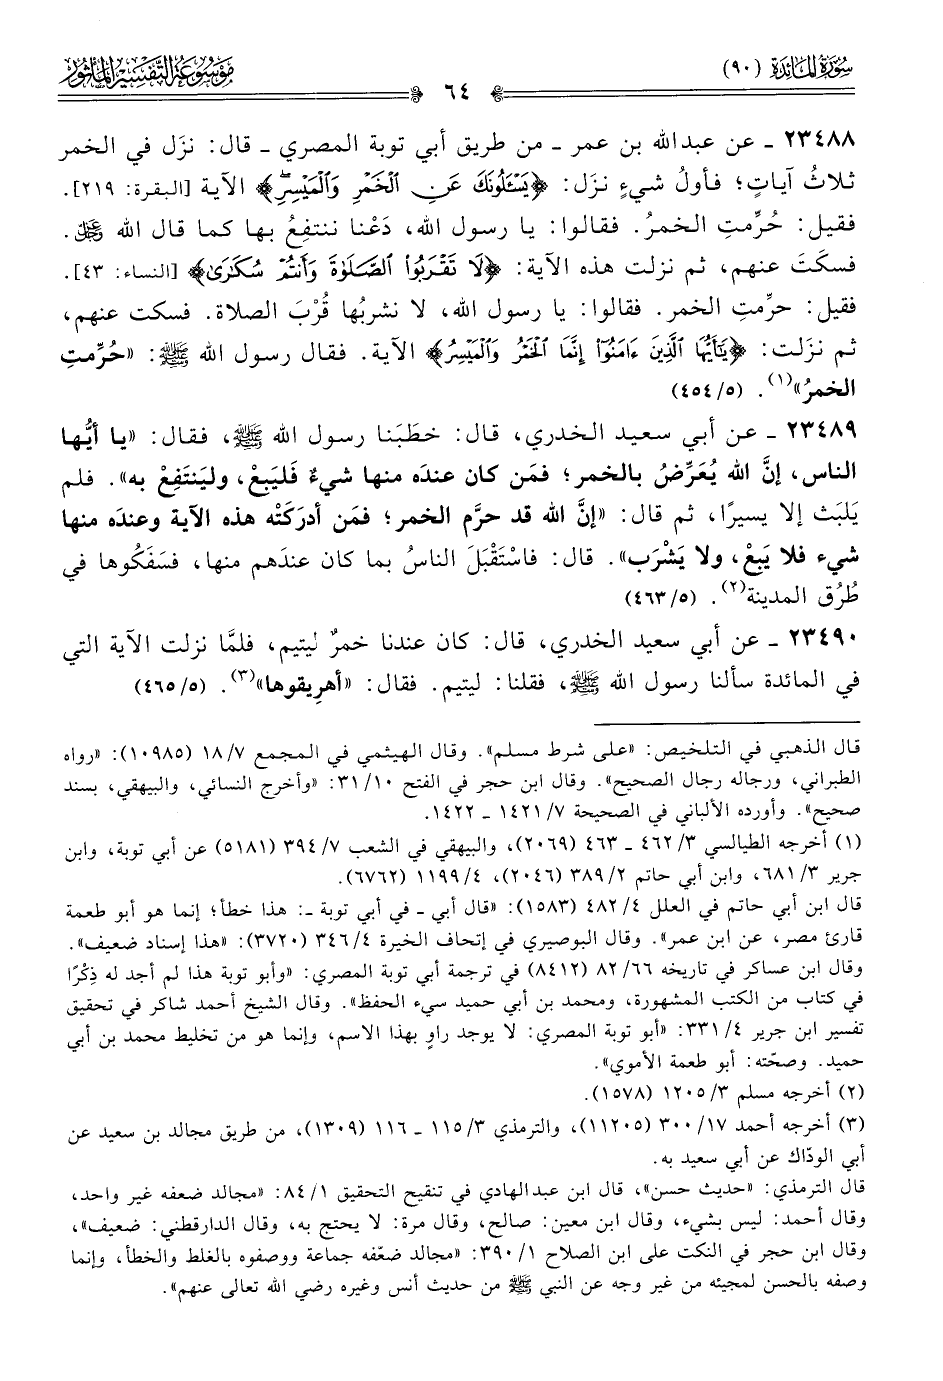 سُورَةُ المَائِدَة (٩٠)
مَوْسُوعَة التَّفْسِير المَأْثُور
٦٤
٢٣٤٨٨ ـ عن عبدالله بن عمر ـ من طريق أبي توبة المصري ـ قال: نزَل في الخمر
ثلاثُ آياتٍ؛ فأولُ شيءٍ نزَل: ﴿يَسْـَٔلُونَكَ عَنِ ٱلْخَمْرِ وَٱلْمَيْسِرِۖ﴾ الآية [البقرة: ٢١٩].
فقيل: حُرِّمتِ الخمرُ. فقالوا: يا رسول الله، دَعْنا ننتفِعُ بها كما قال الله عز وجل.
فسكَتَ عنهم، ثم نزلت هذه الآية: ﴿لَا تَقْرَبُوا۟ ٱلصَّلَوٰةَ وَأَنتُمْ سُكَـٰرَىٰ﴾ [النساء: ٤٣].
فقيل: حرِّمتِ الخمر. فقالوا: يا رسول الله، لا نشربُها قُرْبَ الصلاة. فسكت عنهم،
ثم نزلت: ﴿يَـٰٓأَيُّهَا ٱلَّذِينَ ءَامَنُوٓا۟ إِنَّمَا ٱلْخَمْرُ وَٱلْمَيْسِرُ﴾ الآية. فقال رسول الله ﷺ: «حُرِّمتِ
الخمرُ»(١). (٤٥٤/٥)
٢٣٤٨٩ ـ عن أبي سعيد الخدري، قال: خطَبَنا رسول الله ﷺ، فقال: «يا أيُّها
الناس، إنَّ الله يُعَرِّضُ بالخمر؛ فمَن كان عندَه منها شيءٌ فَليَبِعْ، وليَنتَفِعْ به». فلم
يَلبَث إلا يسيرًا، ثم قال: «إنَّ الله قد حرَّم الخمر؛ فمَن أدرَكَتْه هذه الآية وعندَه منها
شيء فلا يَبِعْ، ولا يَشْرَب». قال: فاسْتَقْبَلَ الناسُ بما كان عندَهم منها، فسَفَكُوها في
طُرُق المدينة(٢). (٤٦٣/٥)
٢٣٤٩٠ ـ عن أبي سعيد الخدري، قال: كان عندنا خمرٌ ليتيم، فلمَّا نزلت الآية التي
في المائدة سألنا رسول الله ﷺ، فقلنا: ليتيم. فقال: «أهرِيقوها»(٣). (٤٦٥/٥)
قال الذهبي في التلخيص: «على شرط مسلم». وقال الهيثمي في المجمع ١٨/٧ (١٠٩٨٥): «رواه
الطبراني، ورجاله رجال الصحيح». وقال ابن حجر في الفتح ٣١/١٠: «وأخرج النسائي، والبيهقي، بسند
صحيح». وأورده الألباني في الصحيحة ١٤٢١/٧ ـ ١٤٢٢.
(١) أخرجه الطيالسي ٤٦٢/٣ ـ ٤٦٣ (٢٠٦٩)، والبيهقي في الشعب ٣٩٤/٧ (٥١٨١) عن أبي توبة، وابن
جرير ٦٨١/٣، وابن أبي حاتم ٣٨٩/٢ (٢٠٤٦)، ١١٩٩/٤ (٦٧٦٢).
قال ابن أبي حاتم في العلل ٤٨٢/٤ (١٥٨٣): «قال أبي ـ في أبي توبة ـ: هذا خطأ؛ إنما هو أبو طعمة
قارئ مصر، عن ابن عمر». وقال البوصيري في إتحاف الخيرة ٣٤٦/٤ (٣٧٢٠): «هذا إسناد ضعيف».
وقال ابن عساكر في تاريخه ٨٢/٦٦ (٨٤١٢) في ترجمة أبي توبة المصري: «وأبو توبة هذا لم أجد له ذِكْرًا
في كتاب من الكتب المشهورة، ومحمد بن أبي حميد سيء الحفظ». وقال الشيخ أحمد شاكر في تحقيق
تفسير ابن جرير ٣٣١/٤: «أبو توبة المصري: لا يوجد راوٍ بهذا الاسم، وإنما هو من تخليط محمد بن أبي
حميد. وصحّته: أبو طعمة الأموي».
(٢) أخرجه مسلم ١٢٠٥/٣ (١٥٧٨).
(٣) أخرجه أحمد ٣٠٠/١٧ (١١٢٠٥)، والترمذي ١١٥/٣ ـ ١١٦ (١٣٠٩)، من طريق مجالد بن سعيد عن
أبي الودّاك عن أبي سعيد به.
قال الترمذي: «حديث حسن»، قال ابن عبدالهادي في تنقيح التحقيق ٨٤/١: «مجالد ضعفه غير واحد،
وقال أحمد: ليس بشيء، وقال ابن معين: صالح، وقال مرة: لا يحتج به، وقال الدارقطني: ضعيف»،
وقال ابن حجر في النكت على ابن الصلاح ٣٩٠/١: «مجالد ضعّفه جماعة ووصفوه بالغلط والخطأ، وإنما
وصفه بالحسن لمجيئه من غير وجه عن النبي ﷺ من حديث أنس وغيره رضي الله تعالى عنهم».